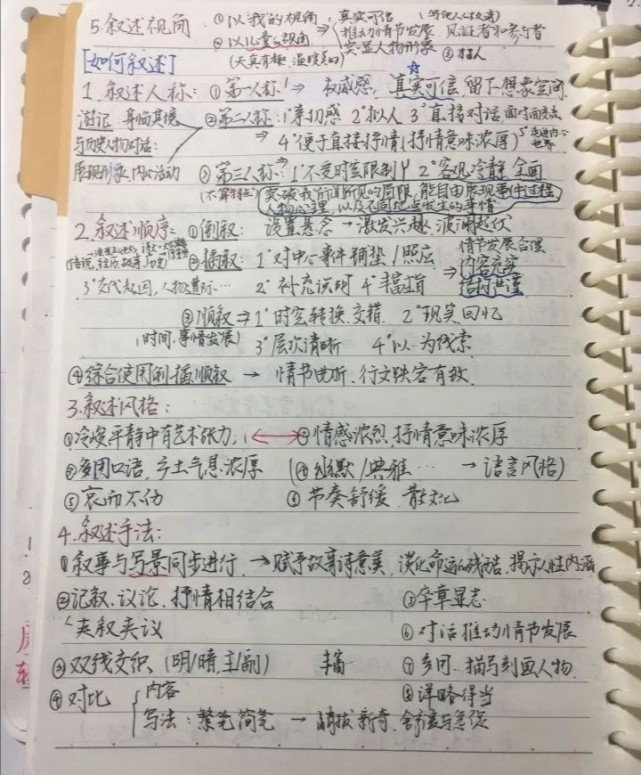 5.叙述视角 ①以我的视角 真实可信
②以儿童的视角 推动情节发展 见证者和参与者
(天真有趣,温暖美好) 突显人物形象 ③掺入
[如何叙述]
1.叙述人称:①第一人称⇒ 权威感,真实可信 留下想象空间
游记 身临其境 ②第二人称:1°亲切感 2°拟人 3°直接对话 面对面交流
与历史人物对话: ⇒ 4°便于直接抒情(抒情意味浓厚) 5°走进内心世界
展现形象,内心活动 ③第三人称:1°不受时空限制 2°客观冷静 全面
突破我所闻所见的局限,能自由展现事件过程
人物心理,以及不同地点发生的事情
2.叙述顺序:①倒叙: 设置悬念→激发兴趣 波澜起伏
②插叙:1°对中心事件铺垫/照应 情节发展合理
传说,经历,故事,历史 ⇒ 内容充实
3°交代起因,人物遭际… 2°补充说明 4°丰富主旨 结构严谨
③顺叙⇒1°时空转换,交错 2°现实,回忆
(时间,事情发展) 3°层次清晰 4°以…为线索
④综合使用倒插顺叙 → 情节曲折,行文跌宕有致
3.叙述风格:
①冷峻平静中有艺术张力 ⟷ ②情感浓烈 抒情意味浓厚
③多用口语,乡土气息浓厚 (④幽默/典雅… → 语言风格)
⑤哀而不伤 ⑥节奏舒缓 散文化
4.叙述手法:
①叙事与写景同步进行,→赋予故事诗意美,淡化命运的残酷,揭示人性内涵
②记叙、议论、抒情相结合 ⑤卒章显志
夹叙夹议 ⑥对话推动情节发展
③双线交织(明/暗,主/副) 丰富 ⑦多向…描写刻画人物
④对比 内容 ⑧详略得当
写法:繁笔简笔 → 峭拔新奇,舒缓与急促